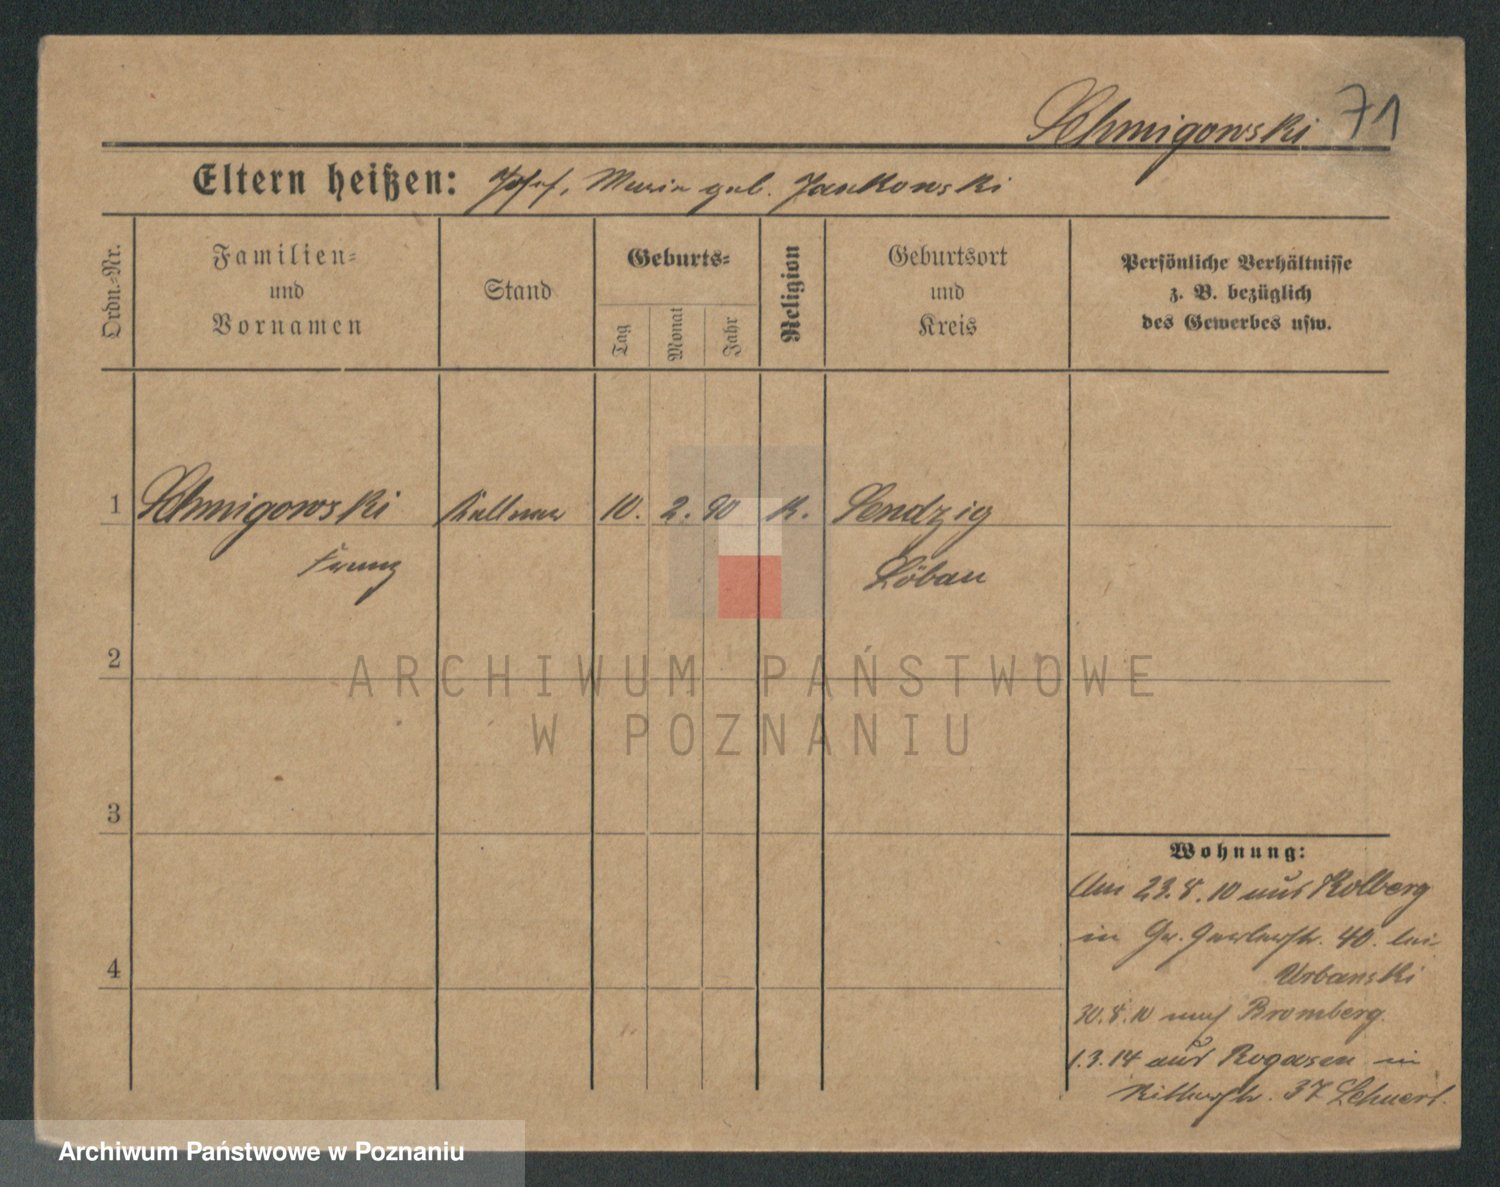 Schmigowski 71
Eltern heißen: Josef, Maria geb. Jankowski
Ordn.=Nr.
Familien=
und
Vornamen
Stand
Geburts=
Tag
Monat
Jahr
Religion
Geburtsort
und
Kreis
Persönliche Verhältnisse
z. B. bezüglich
des Gewerbes usw.
1 Schmigowski Kellner 10. 2. 90 K. Sendzig
Franz Löbau
2
3
4
Wohnung:
Am 23.8.10 aus Kolberg
in Gr. Gerberstr. 40. bei
Urbanski
30.8.10 nach Bromberg.
1.3.14 aus Rogasen in
Ritterstr. 37
ARCHIWUM PAŃSTWOWE
W POZNANIU
Archiwum Państwowe w Poznaniu